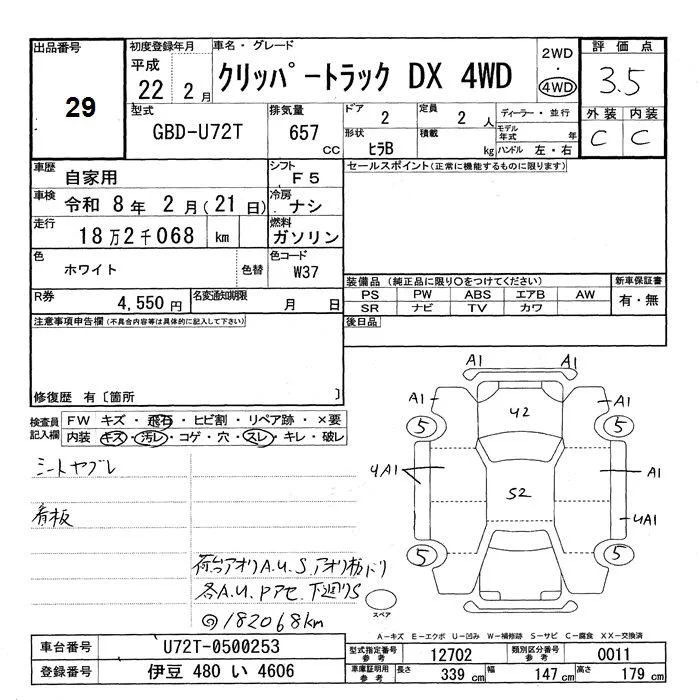 出品番号 初度登録年月 車名・グレード 2WD・4WD 評価点
29 平成 22 2月 クリッパートラック DX 4WD 3.5
型式 GBD-U72T 排気量 657 CC ドア 2 定員 2 人 ディーラー・並行 外装 内装
形状 ヒラB 積載 kg モデル年式 年 ハンドル 左・右 C C
車歴 自家用 シフト F5 セールスポイント(正常に機能するものに限ります)
車検 令和 8年 2月(21日) 冷房 ナシ
走行 18万2千068 km 燃料 ガソリン
色 ホワイト 色替 色コード W37
装備品 (純正品に限り○をつけてください) 新車保証書
PS PW ABS エアB AW 有・無
SR ナビ TV カワ
R券 4,550円 名変通知期限 月 日
後日品
注意事項申告欄(不具合内容等は具体的に記入して下さい)
修復歴 有〔箇所 〕
検査員記入欄 FW キズ・飛石・ヒビ割・リペア跡・×要
内装 キズ・汚レ・コゲ・穴・スレ・キレ・破レ
シートヤブレ
看板
荷台アオリA.U.S.アオリ
各A.U、Pアセ、下廻りS
182068km
A1 A1
A1 A1
5 U2 5
4A1 S2 A1
4A1
5 5
スペア
A-キズ E-エクボ U-凹み W-補修跡 S-サビ C-腐食 XX-交換済
車台番号 U72T-0500253 型式指定番号 参考 12702 類別区分番号 参考 0011
登録番号 伊豆 480 い 4606 車庫証明用 参考 長さ 339 cm 幅 147 cm 高さ 179 cm